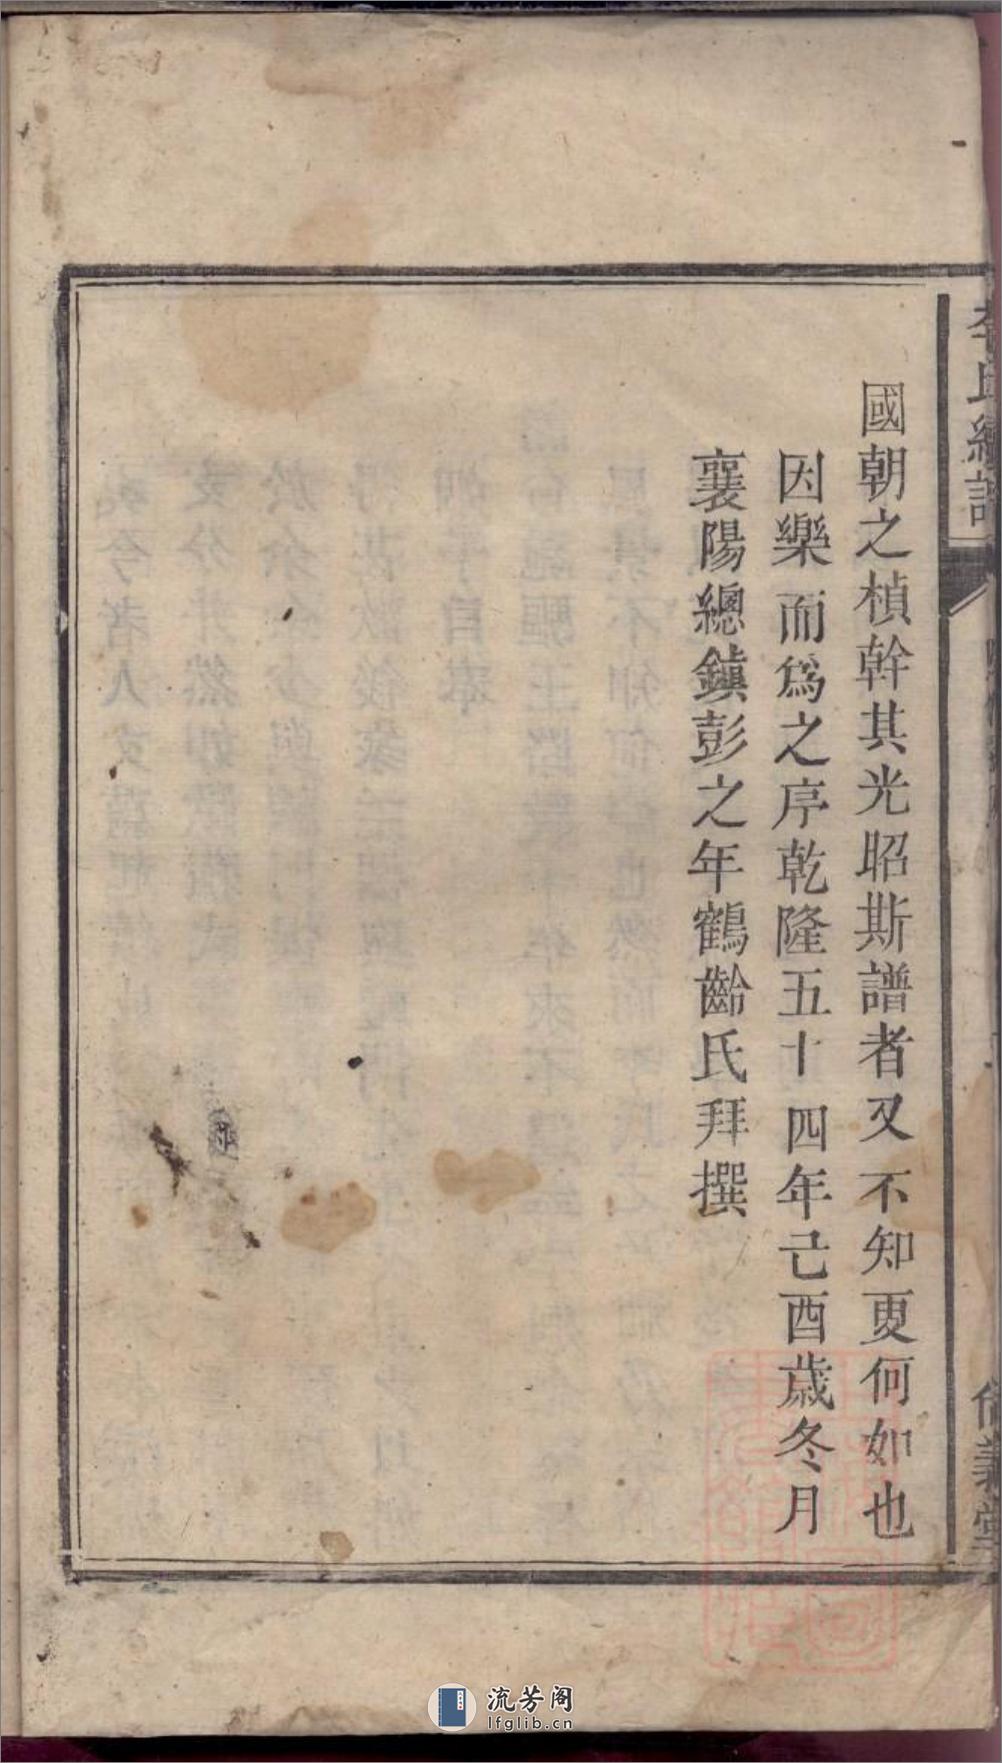 國朝之楨幹其光昭斯譜者又不知更何如也
因樂而為之序乾隆五十四年己酉歲冬月
襄陽總鎮彭之年鶴齡氏拜撰
流芳阁
lfglib.cn